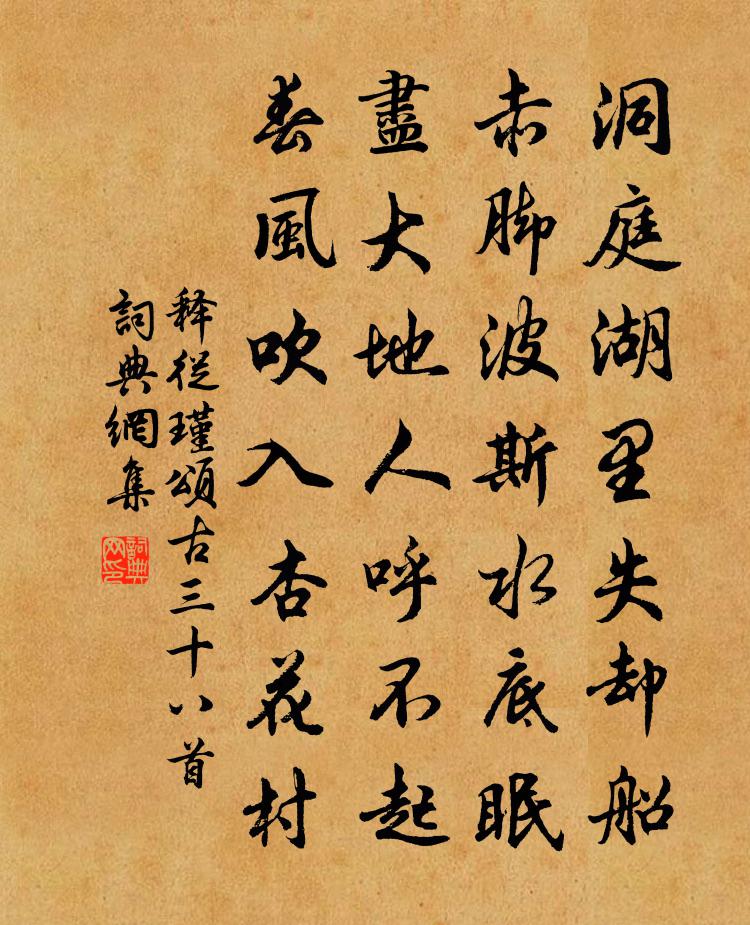 洞庭湖里失却船
赤脚波斯水底眠
盡大地人呼不起
春風吹入杏花村
释從瑾頌古三十八首
詞典網集
詞典网印